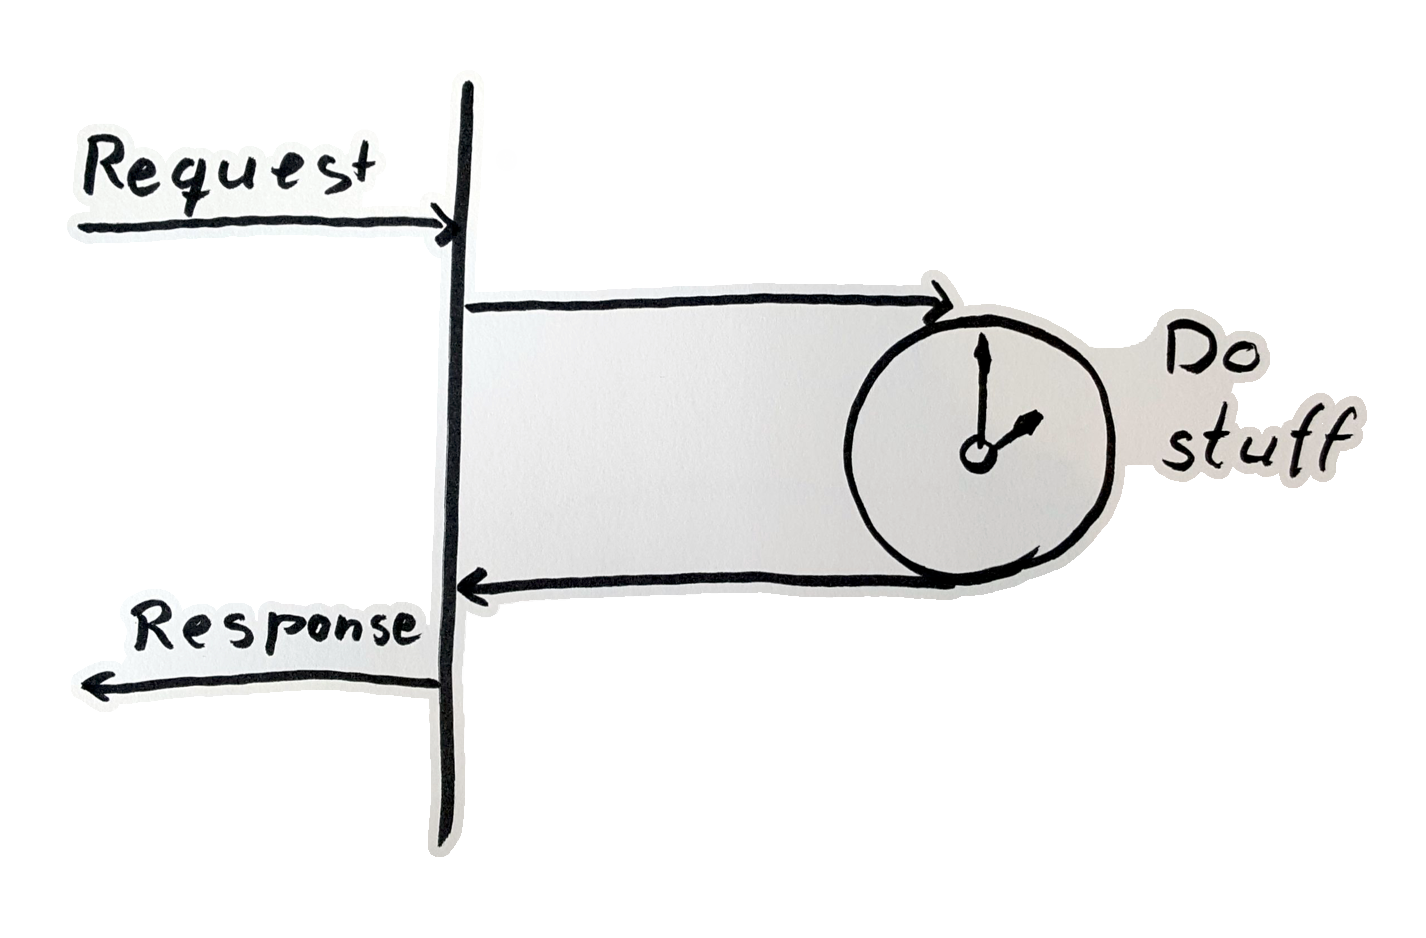 Request
Do
stuff
Response